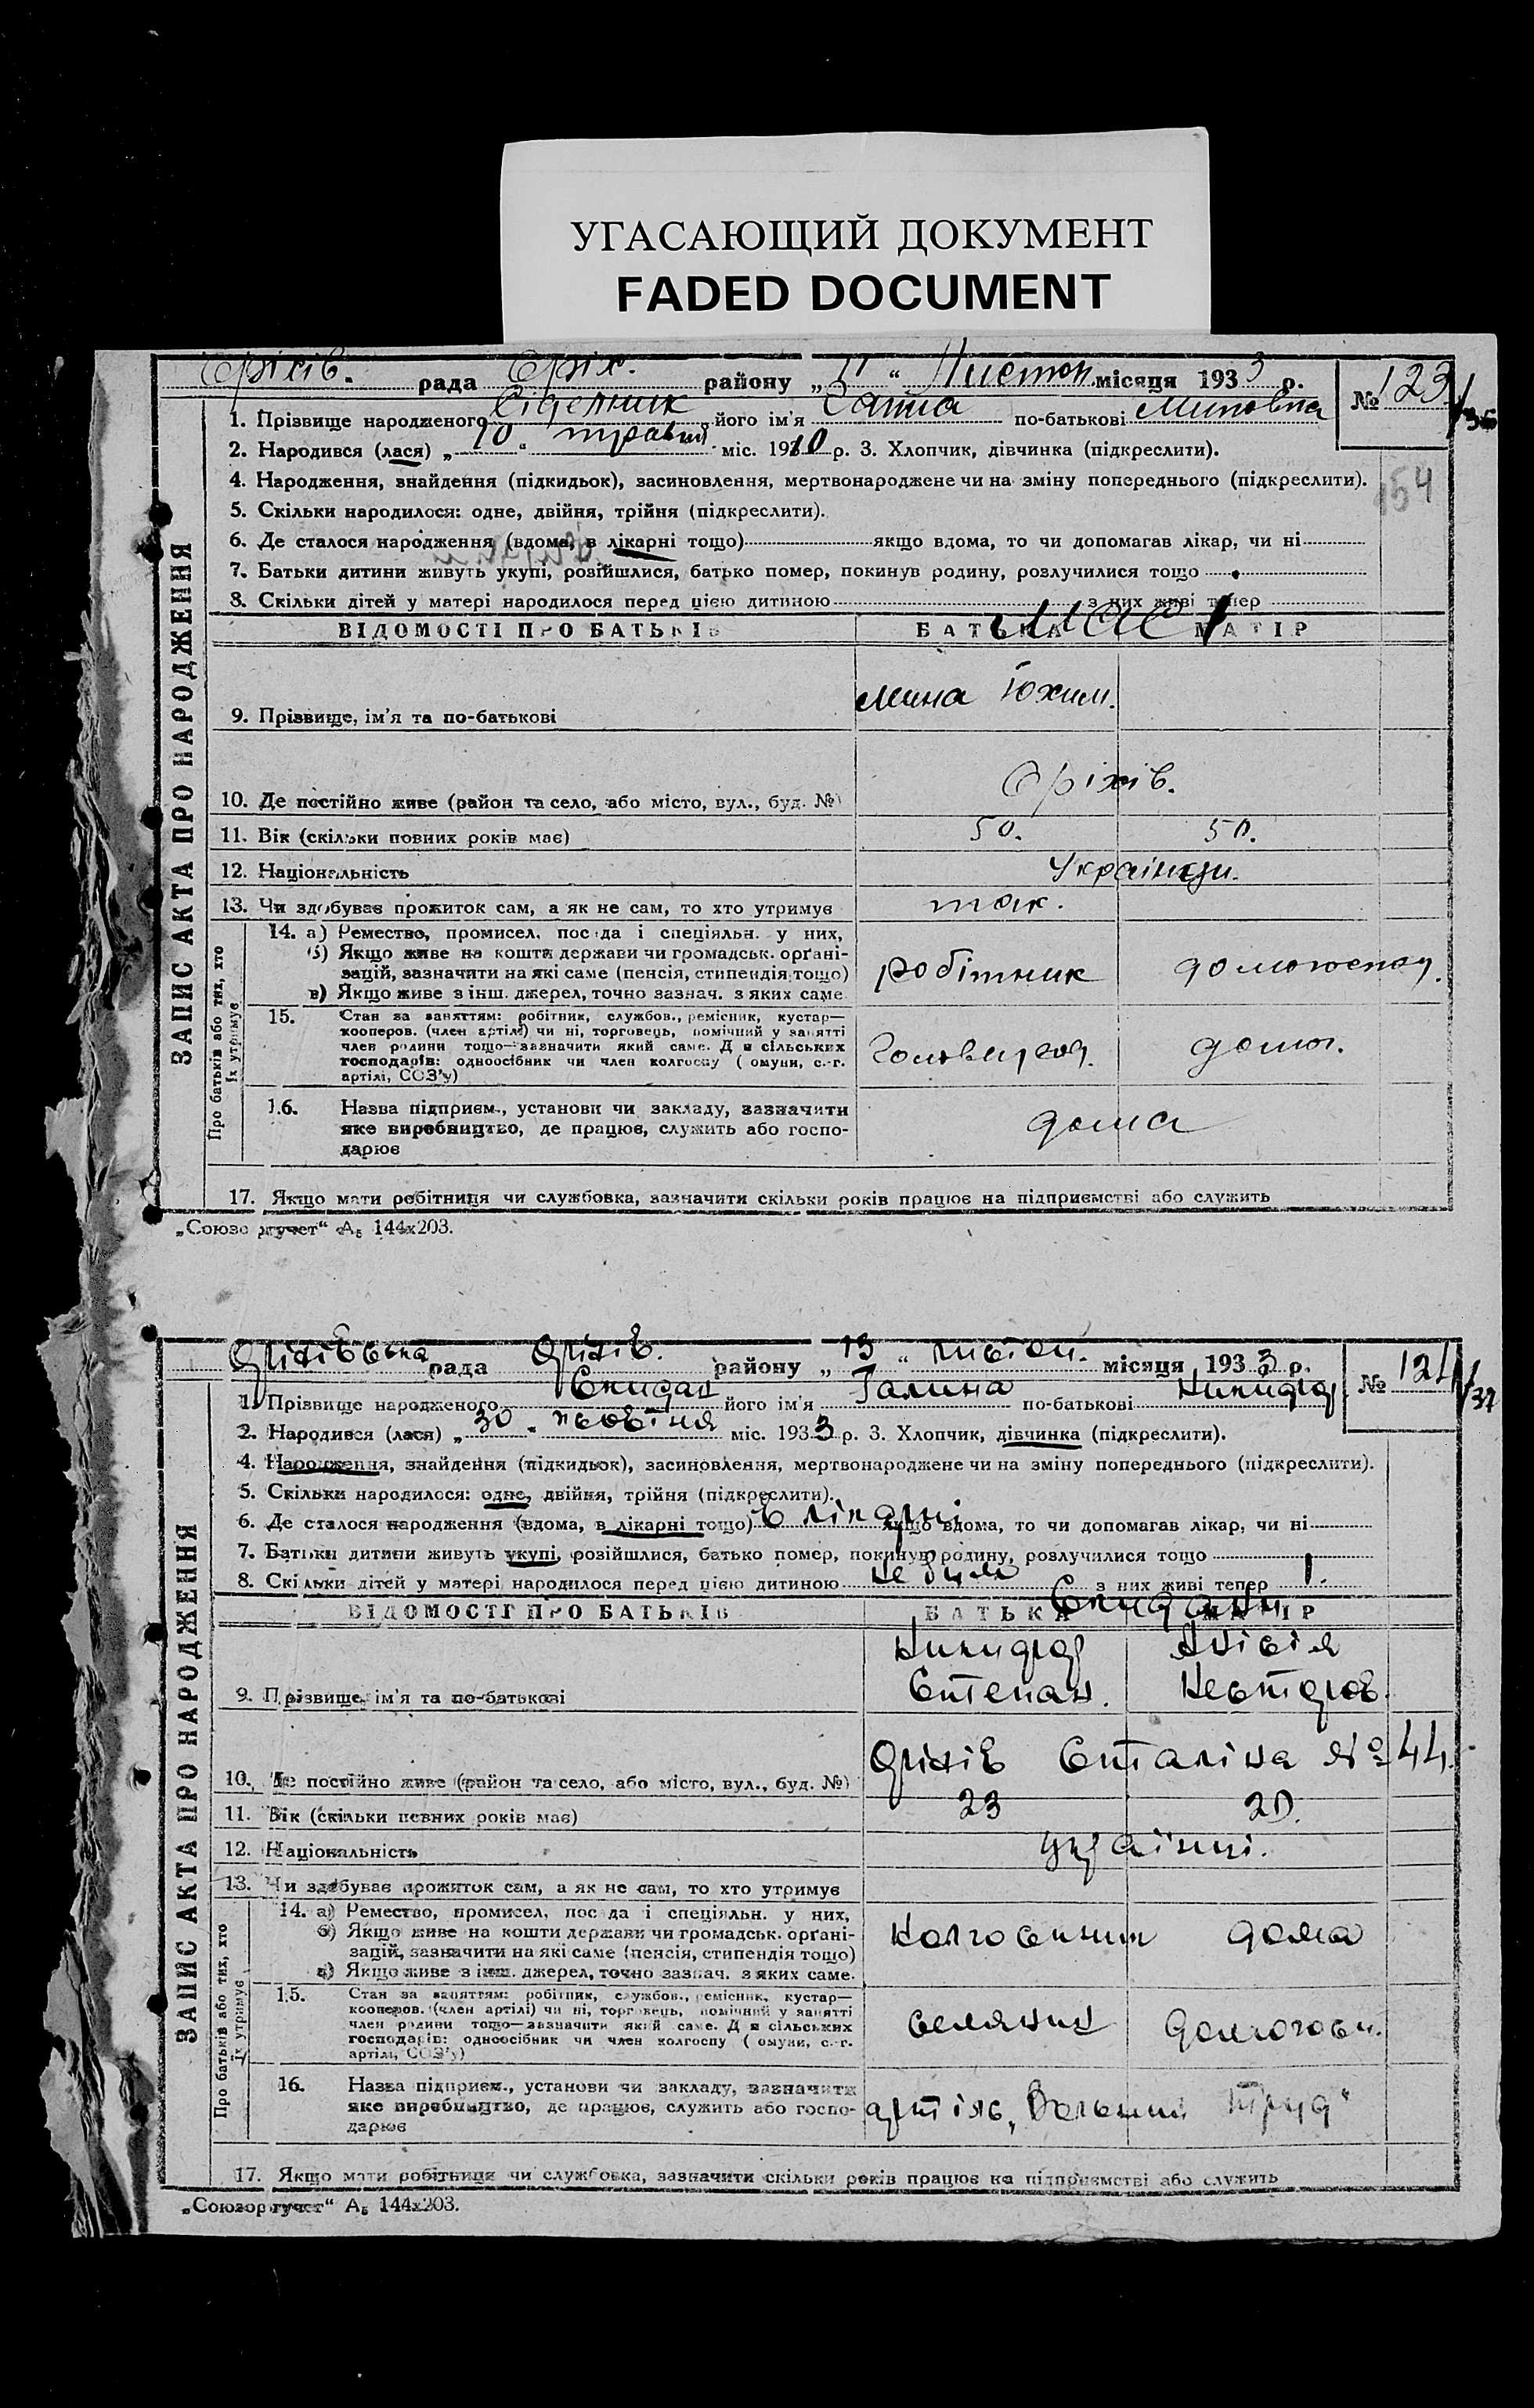 УГАСАЮЩИЙ ДОКУМЕНТ
FADED DOCUMENT
Оріхів. рада Оріх. району „11“ Листоп місяця 1933 р. № 123
1. Прізвище народженого його ім'я по-батькові Миновна
2. Народився (лася) „10“ травня міс. 19 р. 3. Хлопчик, дівчинка (підкреслити).
4. Народження, знайдення (підкидьок), засиновлення, мертвонароджене чи на зміну попереднього (підкреслити).
154
5. Скільки народилося: одне, двійня, трійня (підкреслити).
6. Де сталося народження (вдома, в лікарні тощо) якщо вдома, то чи допомагав лікар, чи ні
7. Батьки дитини живуть укупі, розійшлися, батько помер, покинув родину, розлучилися тощо
8. Скільки дітей у матері народилося перед цією дитиною з них живі тепер
ВІДОМОСТІ ПРО БАТЬКІВ БАТЬКА МАТІР
9. Прізвище, ім'я та по-батькові Мина Юхим.
10. Де постійно живе (район та село, або місто, вул., буд. №) Оріхів.
11. Вік (скільки повних років має) 50. 50.
12. Національність Українци.
13. Чи здобуває прожиток сам, а як не сам, то хто утримує так.
14. а) Ремество, промисел, посада і спеціяльн. у них,
б) Якщо живе на кошти держави чи громадськ. орґані-
зацій, зазначити на які саме (пенсія, стипендія тощо) робітник
в) Якщо живе з інш. джерел, точно зазнач. з яких саме
15. Стан за заняттям: робітник, службов., ремісник, кустар—
кооперов. (член артілі) чи ні, торговець, помічний у занятті
член родини тощо—зазначити який саме. Для сільських
господарів: одноосібник чи член колгоспу (омуни, с.-г.
артілі, СОЗ'у) домог.
16. Назва підприєм., установи чи закладу, зазначити
яке виробництво, де працює, служить або госпо-
дарює дома
17. Якщо мати робітниця чи службовка, зазначити скільки років працює на підприємстві або служить
ЗАПИС АКТА ПРО НАРОДЖЕННЯ
Про батьків або тих, хто їх утримує
„Союзоргучет“ А₅ 144х203.
Оріхівська рада Оріхів. району „13“ листоп. місяця 1933 р. № 124
1. Прізвище народженого Скидан його ім'я Галина по-батькові Никифор
2. Народився (лася) „30“ жовтня міс. 1933 р. 3. Хлопчик, дівчинка (підкреслити).
4. Народження, знайдення (підкидьок), засиновлення, мертвонароджене чи на зміну попереднього (підкреслити).
5. Скільки народилося: одне, двійня, трійня (підкреслити).
6. Де сталося народження (вдома, в лікарні тощо) в лікарні якщо вдома, то чи допомагав лікар, чи ні
7. Батьки дитини живуть укупі, розійшлися, батько помер, покинув родину, розлучилися тощо
8. Скільки дітей у матері народилося перед цією дитиною не було з них живі тепер 1.
ВІДОМОСТІ ПРО БАТЬКІВ БАТЬКА МАТІР
Скидани
Никифор Анісія
9. Прізвище, ім'я та по-батькові Степан. Нестеров.
10. Де постійно живе (район та село, або місто, вул., буд. №) Оріхів Сталіна № 44.
11. Вік (скільки повних років має) 23 20.
12. Національність українці.
13. Чи здобуває прожиток сам, а як не сам, то хто утримує
14. а) Ремество, промисел, посада і спеціяльн. у них,
б) Якщо живе на кошти держави чи громадськ. орґані- колгоспник дома
зацій, зазначити на які саме (пенсія, стипендія тощо)
в) Якщо живе з інш. джерел, точно зазнач. з яких саме.
15. Стан за заняттям: робітник, службов., ремісник, кустар—
кооперов. (член артілі) чи ні, торговець, помічний у занятті
член родини тощо—зазначити який саме. Для сільських селянин домогосп.
господарів: одноосібник чи член колгоспу (омуни, с.-г.
артілі, СОЗ'у)
16. Назва підприєм., установи чи закладу, зазначити
яке виробництво, де працює, служить або госпо- артіль „Вольний Труд“
дарює
17. Якщо мати робітниця чи службовка, зазначити скільки років працює на підприємстві або служить
ЗАПИС АКТА ПРО НАРОДЖЕННЯ
Про батьків або тих, хто їх утримує
„Союзоргучет“ А₅ 144х203.